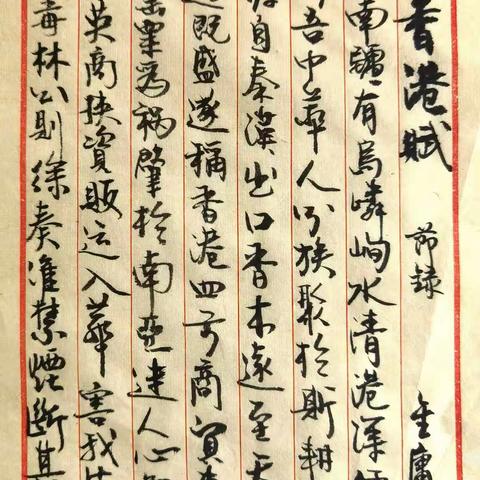 香港賦 節録 金庸
南疆有島嶙峋水清港深
吾中華人分族聚於斯耕
自秦漢出口香木遠至天
既盛遂稱香港四方商賈
粟為禍肇於南亞迷人心
英商挾資販运入華害我
毒林公則徐奏准禁煙斷其